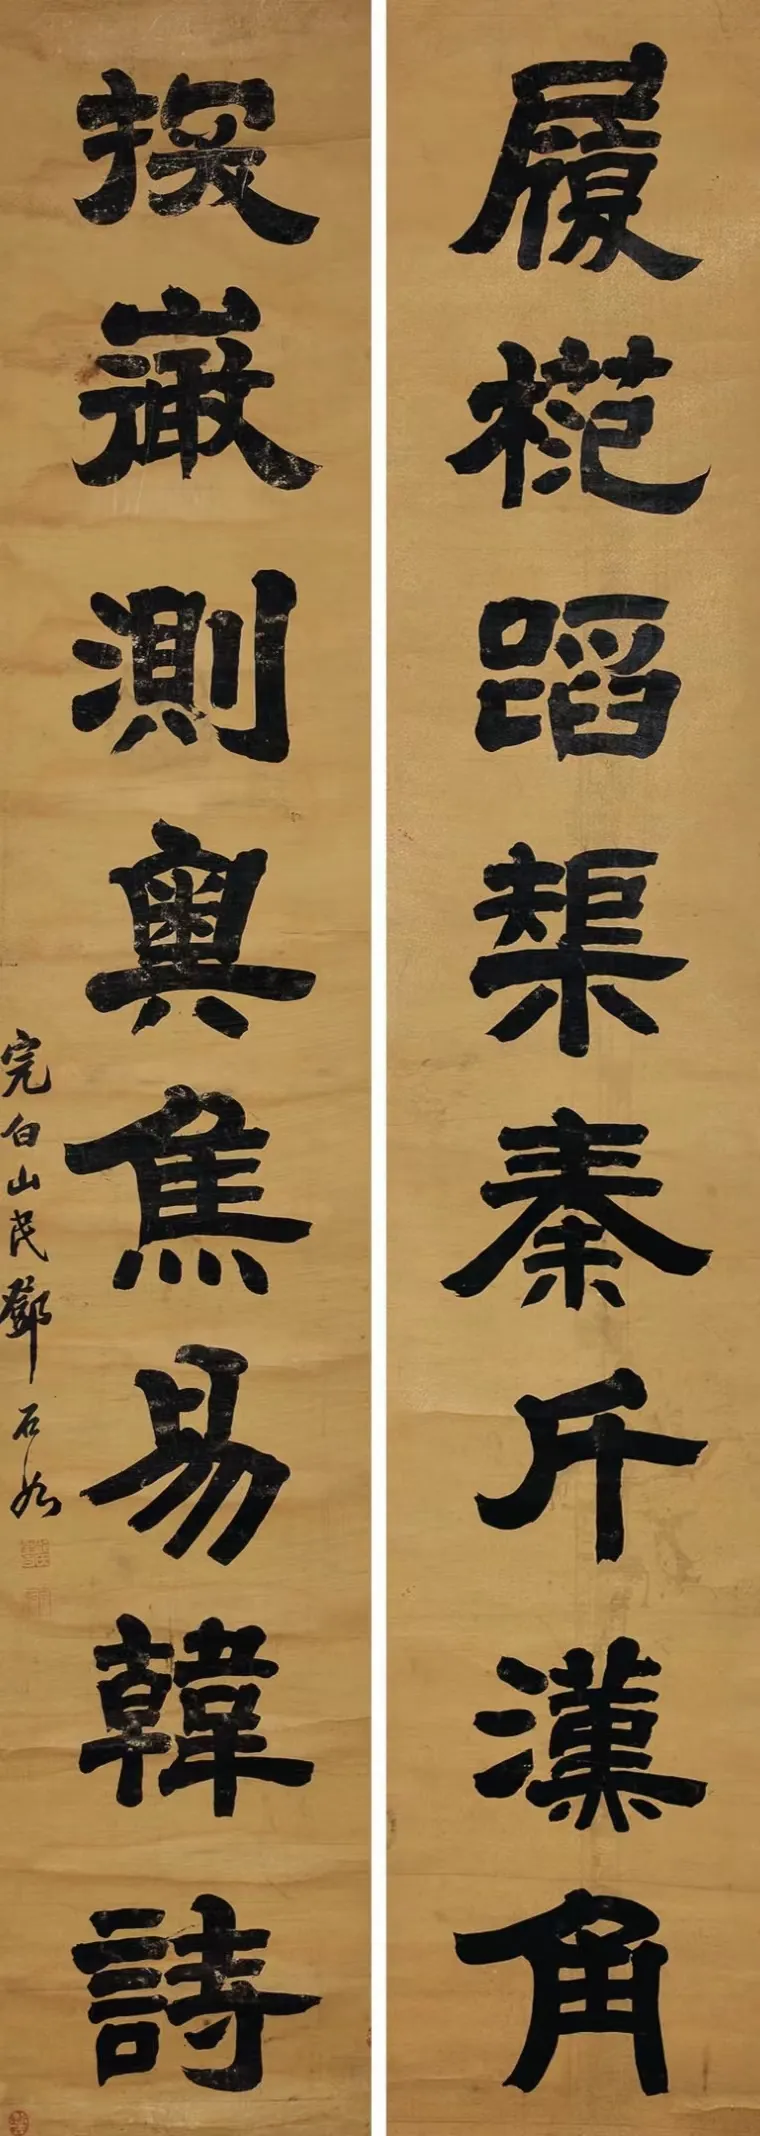 履蹈榘秦斤漢角
探嶶測奧焦易韓詩
完白山民鄧石如